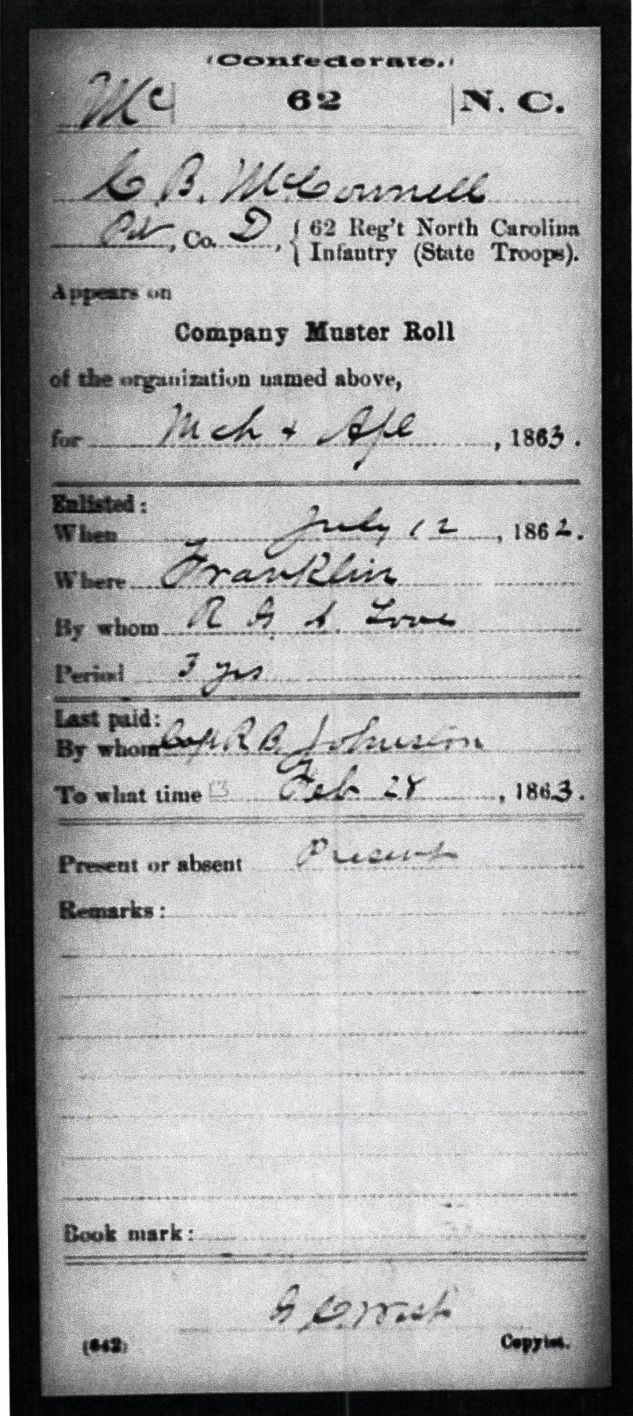 (Confederate.)
Mc 62 N. C.
C B. McConnell
Pvt, Co. D, { 62 Reg't North Carolina
Infantry (State Troops).
Appears on
Company Muster Roll
of the organization named above,
for Mch & Apl, 1863.
Enlisted:
When July 12, 1862.
Where Franklin
By whom R G A. Love
Period 3 yrs
Last paid:
By whom Cap R B Johnston
To what time Feb 28, 1863.
Present or absent Present
Remarks:
Book mark:
(642) Copyist.